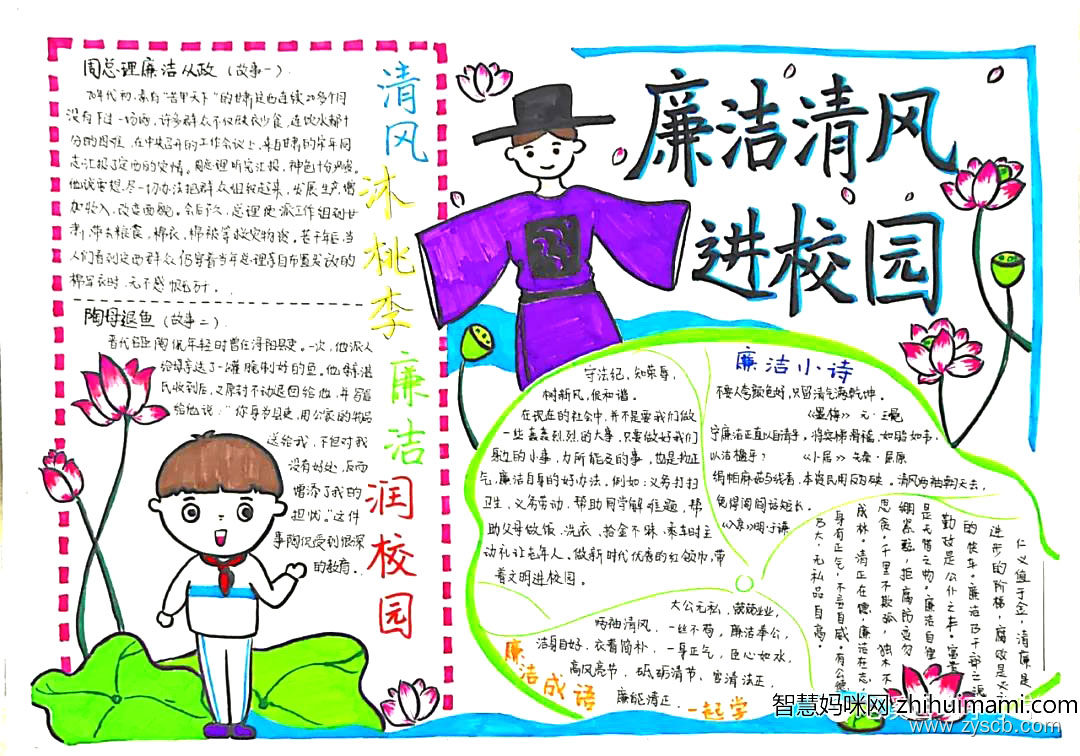 廉洁清风
进校园
周总理廉洁从政（故事一）.
70年代初，素有“苦甲天下”的甘肃定西连续20多个月
没有下过一场雨，许多群众不仅缺衣少食，连饮水都十
分的困难，在中央召开的工作会议上，来自甘肃的宋平同
志汇报了定西的灾情。周总理听完汇报，神色十分严肃。
他说要想尽一切办法把群众组织起来，发展生产，增
加收入，改变面貌。会后不久，总理便派工作组到甘
肃，带去粮食，棉衣，棉被等救灾物资。若干年后，当
人们看到定西群众仍穿着当年总理亲自布置发放的
棉军衣时，无不感慨万分。
陶母退鱼（故事二）.
晋代名臣陶侃年轻时曾任浔阳县吏。一次，他派人
给母亲送了一罐腌制好的鱼，他母亲湛
氏收到后，又原封不动退回给他，并写信
给他说：“你身为县吏，用公家的物品
送给我，不但对我
没有好处，反而
增添了我的
担忧。”这件
事陶侃受到很深
的教育。
清风沐桃李廉洁润校园
守法纪，知荣辱，
树新风，促和谐。
在现在的社会中，并不是要我们做
一些轰轰烈烈的大事，只要做好我们
身边的小事，力所能及的事，也是扬正
气，廉洁自身的好办法，例如：义务打扫
卫生，义务劳动，帮助同学解难题，帮
助父母做饭，洗衣，拾金不昧，乘车时主
动礼让老年人，做新时代优秀的红领巾，带
着文明进校园。
廉洁小诗
不要人夸颜色好，只留清气满乾坤。
《墨梅》元·王冕
宁廉洁正直以自清乎，将突梯滑稽，如脂如韦，
以洁楹乎？ 《卜居》先秦·屈原
绢帕麻菇与线香，本资民用反为殃。清风两袖朝天去，
免得闾阎话短长。
《入京》明·于谦
仁义值千金，清廉是
进步的阶梯，腐败是火
勤政是公仆之本。
是无价之物，廉洁自律
绷紧弦，拒腐防变勿
思贪，千里不欺孤，独木不
成林。清正在德，廉洁在志，
身有正气，不言自威。有公便
为大，无私品自高。
大公无私，兢兢业业，
两袖清风，一丝不苟，廉洁奉公，
洁身自好，衣着简朴，一身正气，臣心如水，
高风亮节，砥砺清节、官清法正，
廉能清正.
廉洁成语
一起学
智慧妈咪网 zhihuimami.com
www.zyscb.com